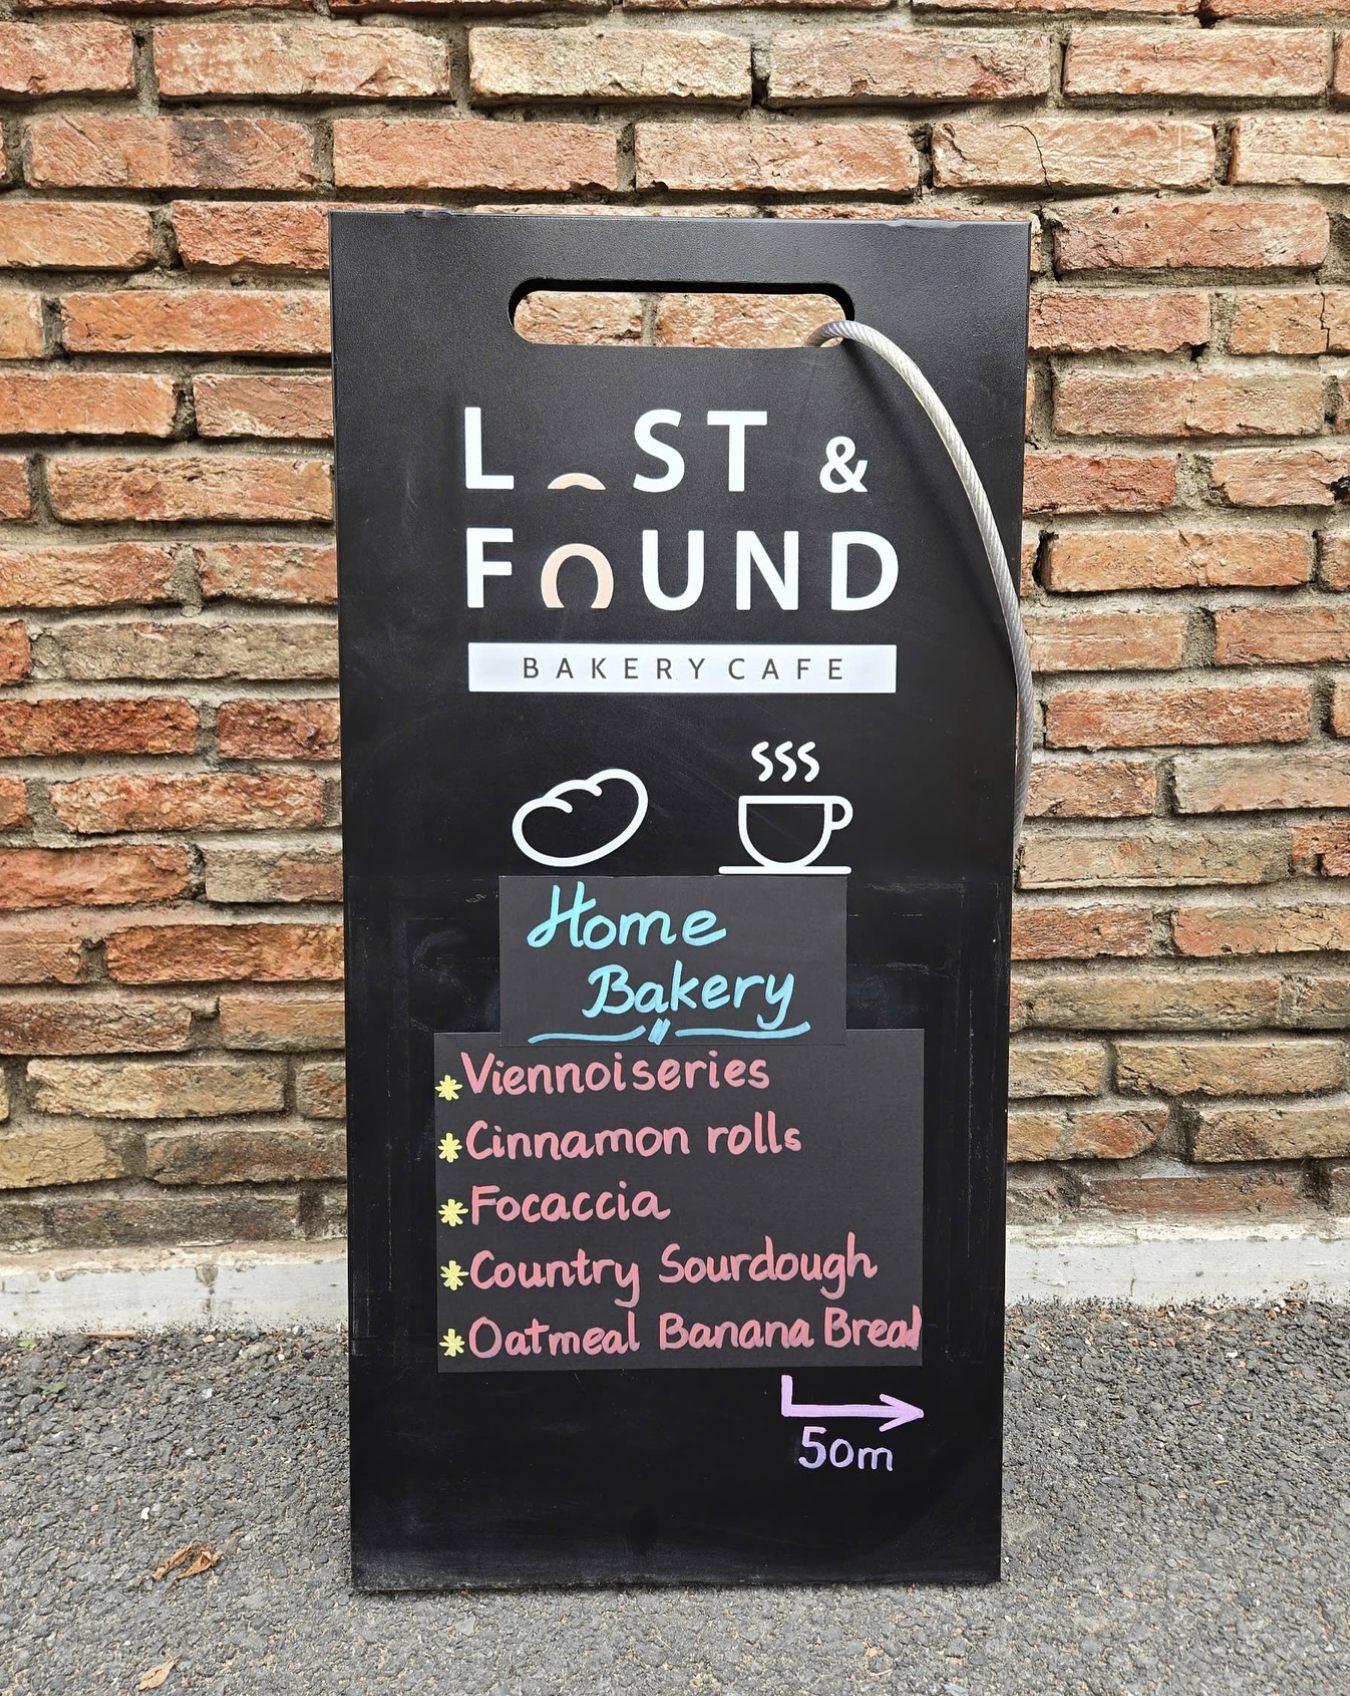 LOST &
FOUND
BAKERY CAFE
Home
Bakery
Viennoiseries
Cinnamon rolls
Focaccia
Country Sourdough
Oatmeal Banana Bread
50m